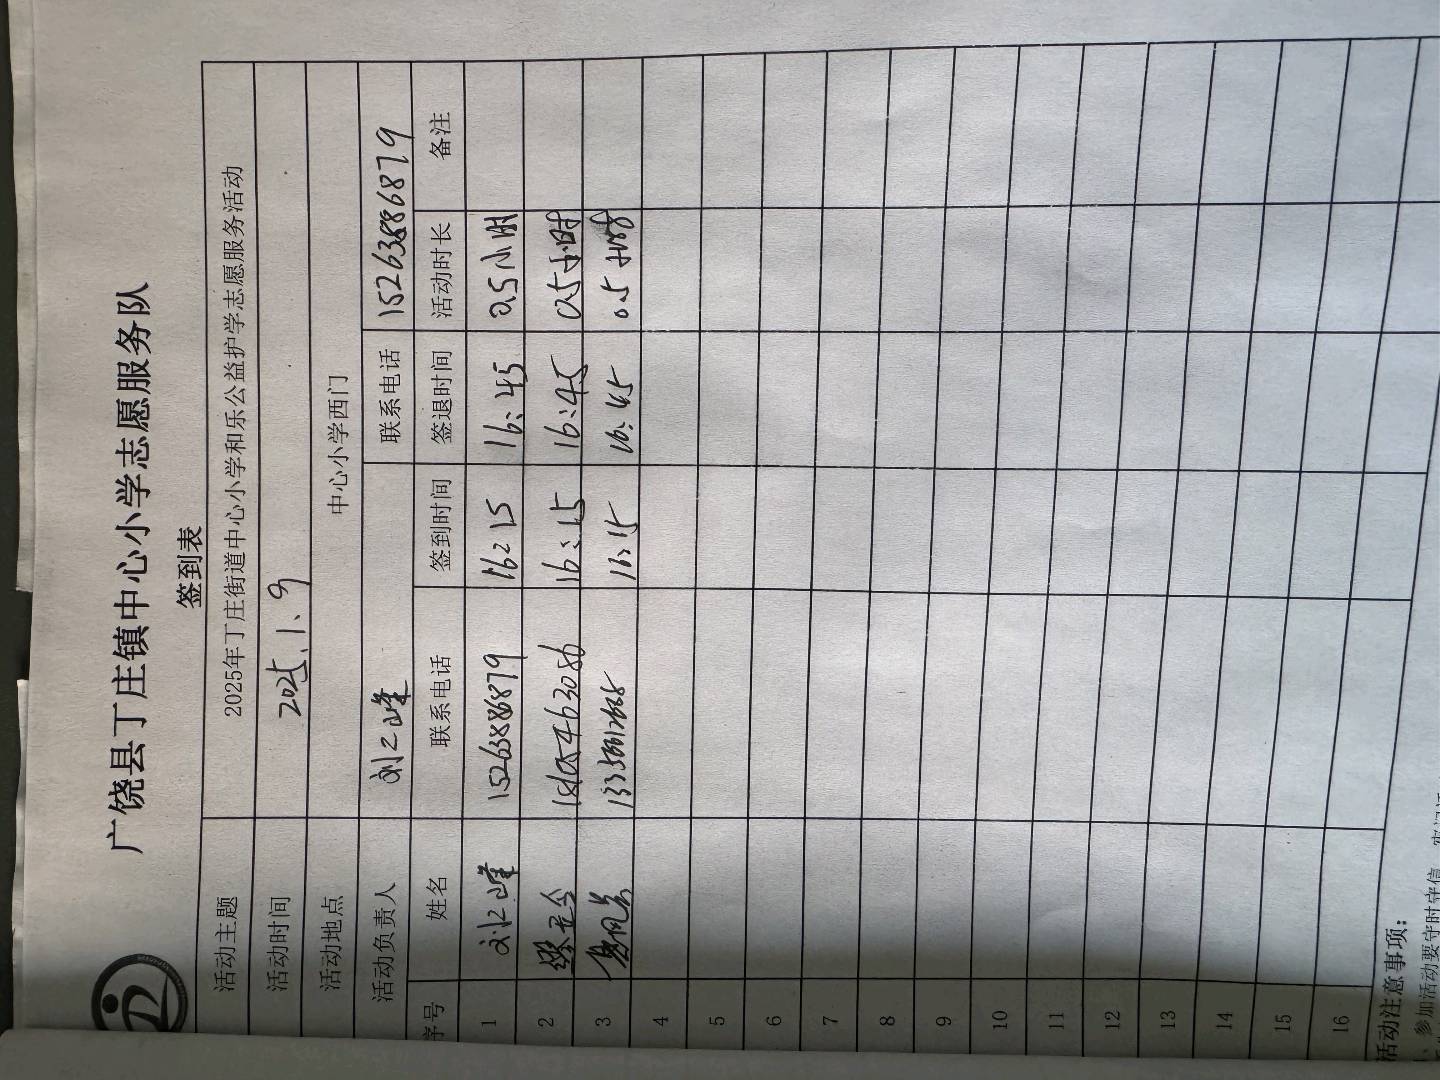 广饶县丁庄镇中心小学志愿服务队
签到表
活动主题 2025年丁庄街道中心小学和乐公益护学志愿服务活动
活动时间 2025.1.9
活动地点 中心小学西门
活动负责人 刘之峰 联系电话 15263886879
序号 姓名 联系电话 签到时间 签退时间 活动时长 备注
1 刘之峰 15263886879 16:15 16:45 0.5小时
2 16:15 16:45 0.5小时
3 16:15 16:45 0.5小时
4
5
6
7
8
9
10
11
12
13
14
15
16
活动注意事项:
参加活动要守时守信